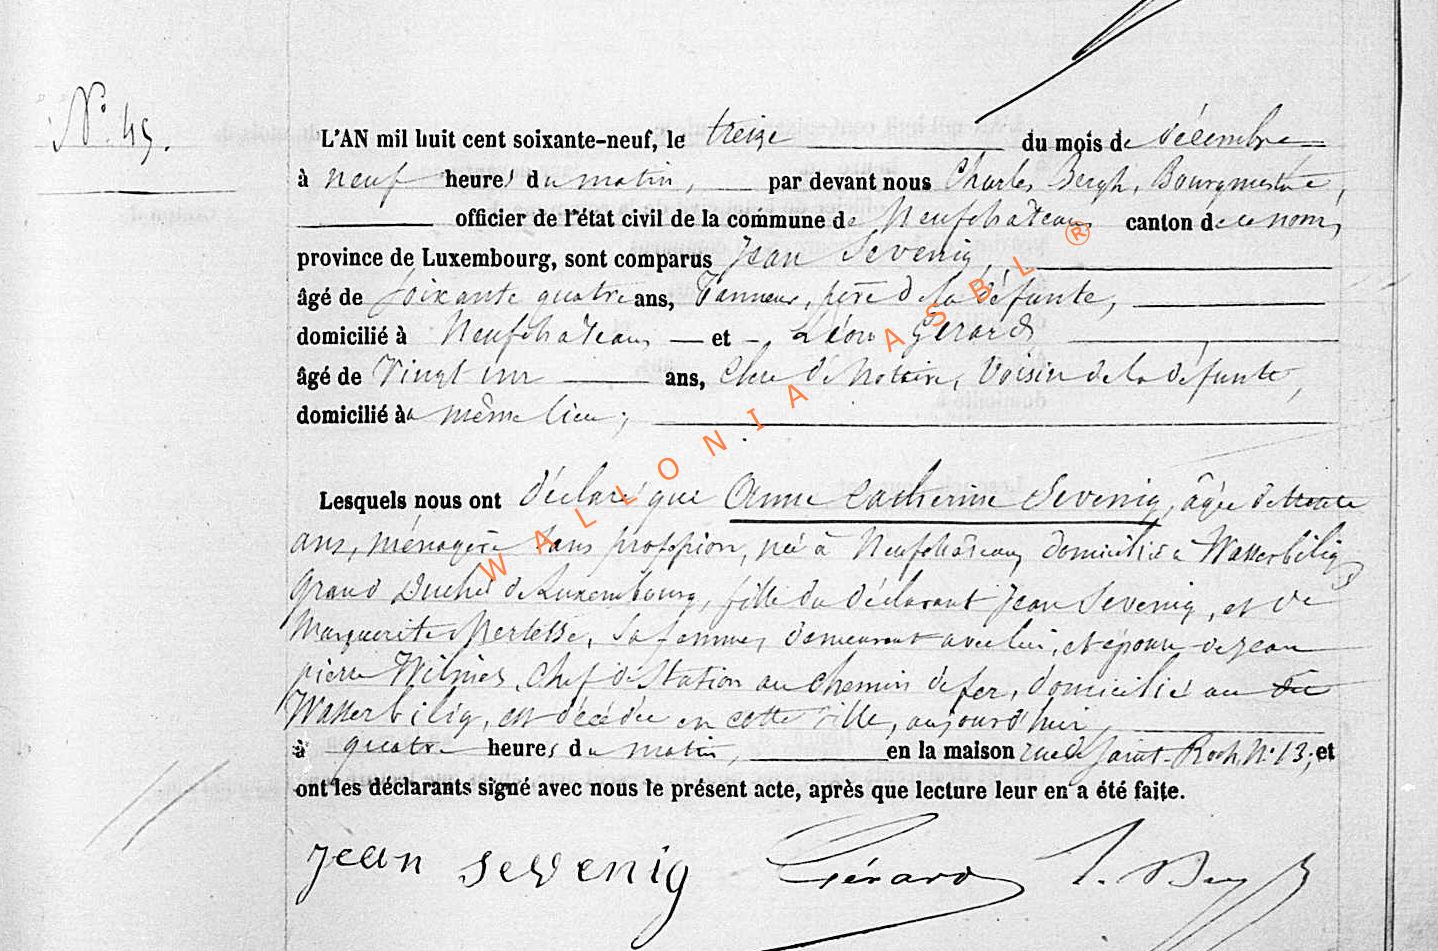 N° 45.
L'AN mil huit cent soixante-neuf, le treize du mois de décembre
à neuf heures du matin, par devant nous Charles Bergh, Bourgmestre,
officier de l'état civil de la commune de Neufchateau canton de ce nom,
province de Luxembourg, sont comparus Jean Sevenig,
âgé de soixante quatre ans, Tanneur, père de la défunte,
domicilié à Neufchateau et Léon Gerard
âgé de Vingt un ans, Clerc de Notaire, Voisin de la défunte,
domicilié à même lieu;
Lesquels nous ont déclaré que Anne Catherine Sevenig, âgée de trente
ans, ménagère sans profession, née à Neufchateau, domiciliée à Wasserbilig
grand Duché de Luxembourg, fille du déclarant Jean Sevenig, et de
Marguerite sa femme, demeurant avec lui, et épouse de Jean
pierre Wilmes, Chef de Station au chemin de fer, domicilié au dit
Wasserbilig, est décédée en cette ville, aujourd'hui,
à quatre heures du matin, en la maison rue de Saint-Roch, N° 13, et
ont les déclarants signé avec nous le présent acte, après que lecture leur en a été faite.
Jean Sevenig Gérard
WALLONIA ASBL ®